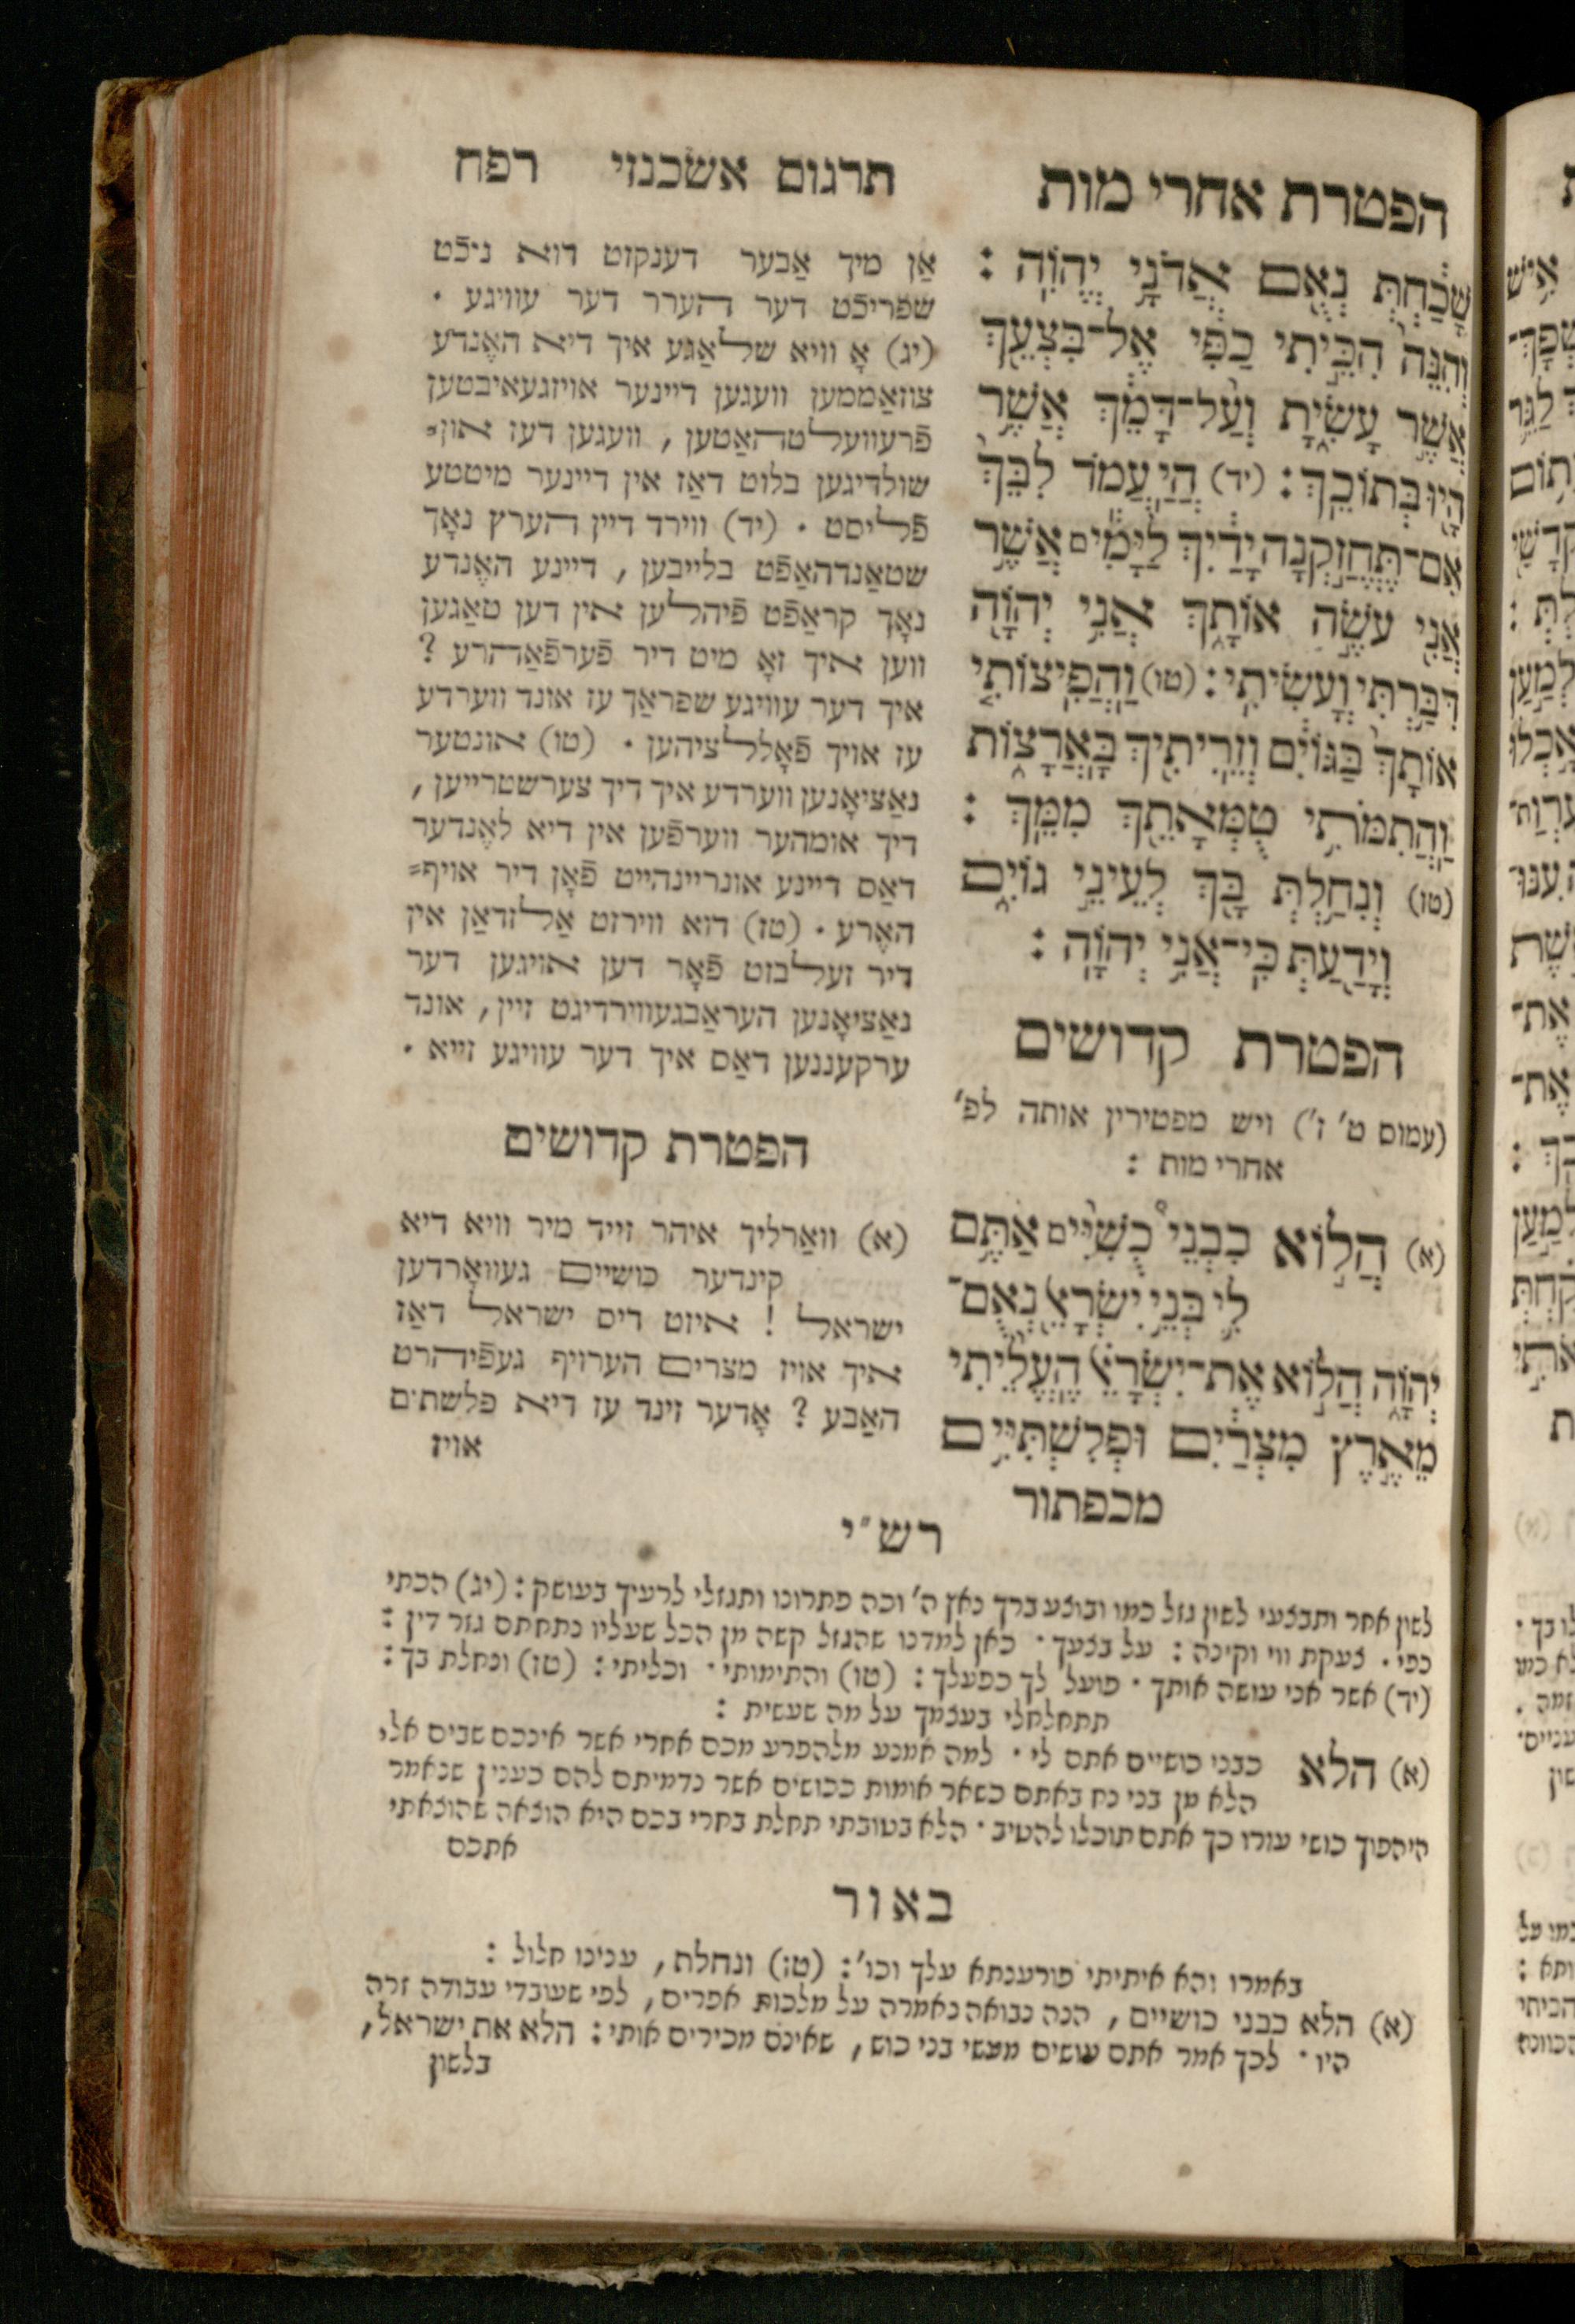 הפטרת אחרי מות
תרגום אשכנזי רפח
שָׁכַ֔חַתְּ נְאֻ֖ם אֲדֹנָ֥י יֱהֹוִֽה :
וְהִנֵּה֙ הִכֵּ֣יתִי כַפִּ֔י אֶל־בִּצְעֵ֖ךְ
אֲשֶׁ֣ר עָשִׂ֑יתָ וְעַ֨ל־דָּמֵ֔ךְ אֲשֶׁ֥ר
הָי֖וּ בְּתוֹכֵֽךְ : (יד) הֲיַעֲמֹ֤ד לִבֵּךְ֙
אִם־תֶּחֱזַ֣קְנָה יָדַ֔יִךְ לַיָּמִ֕ים אֲשֶׁ֥ר
אֲנִ֖י עֹשֶׂ֣ה אוֹתָ֑ךְ אֲנִ֥י יְהֹוָ֖ה
דִּבַּ֥רְתִּי וְעָשִֽׂיתִי : (טו) וַהֲפִיצוֹתִ֤י
אוֹתָךְ֙ בַּגּוֹיִ֔ם וְזֵרִיתִ֖יךְ בָּאֲרָצ֑וֹת
וַהֲתִמֹּתִ֥י טֻמְאָתֵ֖ךְ מִמֵּֽךְ :
(טז) וְנִחַ֥לְתְּ בָּ֖ךְ לְעֵינֵ֣י גוֹיִ֑ם
וְיָדַ֖עַתְּ כִּֽי־אֲנִ֥י יְהֹוָֽה :
הפטרת קדושים
(עמוס ט' ז') ויש מפטירין אותה לפ'
אחרי מות :
(א) הֲל֣וֹא כִבְנֵי֩ כֻשִׁיִּ֨ים אַתֶּ֥ם
לִ֛י בְּנֵ֥י יִשְׂרָאֵ֖ל נְאֻם־
יְהֹוָ֑ה הֲל֣וֹא אֶת־יִשְׂרָאֵ֗ל הֶעֱלֵ֙יתִי֙
מֵאֶ֣רֶץ מִצְרַ֔יִם וּפְלִשְׁתִּיִּ֥ים
מכפתור
אָן מיך אַבער דענקזט דוא ניכֿט
שפריכֿט דער הערר דער עוויגע .
(יג) אָ וויא שלאַגע איך דיא האֶנדע
צוזאַממען וועגען דיינער אויזגעאיבטען
פֿרעוועלטהאַטען , וועגען דעז און=
שולדיגען בלוט דאַז אין דיינער מיטטע
פֿליסט . (יד) ווירד דיין הערץ נאָך
שטאַנדהאַפֿט בלייבען , דיינע האֶנדע
נאָך קראַפֿט פֿיהלען אין דען טאַגען
ווען איך זאָ מיט דיר פֿערפֿאַהרע ?
איך דער עוויגע שפראַך עז אונד ווערדע
עז אויך פֿאָללציהען . (טו) אונטער
נאַציאָנען ווערדע איך דיך צערשטרייען ,
דיך אומהער ווערפֿען אין דיא לאֶנדער
דאַס דיינע אונריינהייט פֿאָן דיר אויף=
האֶרע . (טז) דוא ווירזט אַלזדאַן אין
דיר זעלבזט פֿאָר דען אויגען דער
נאַציאָנען העראַבגעווירדיגט זיין , אונד
ערקעננען דאַס איך דער עוויגע זייא .
הפטרת קדושים
(א) וואַרליך איהר זייד מיר וויא דיא
קינדער כושיים געוואָרדען
ישראל ! איזט דיס ישראל דאַז
איך אויז מצרים הערויף געפֿיהרט
האַבע ? אָדער זינד עז דיא פלשתים
אויז
רש"י
לשון אחר ותבצעי לשון גזל כמו ובוצע ברך נאץ ה' וכה פתרונו ותגזלי לרעיך בעושק : (יג) הכתי
כפי . צעקת ווי וקינה : על בצעך . כאן למדנו שהגזל קשה מן הכל שעליו נתחתם גזר דין :
(יד) אשר אני עושה אותך . פועל לך כפעלך : (טו) והתימותי . וכליתי : (טז) ונחלת בך :
תתחלחלי בעצמך על מה שעשית :
(א) הלא כבני כושיים אתם לי . למה אמנע מלהפרע מכם אחרי אשר אינכם שבים אל,
הלא מן בני נח באתם כשאר אומות ככושים אשר נדמיתם להם כענין שנאמר
היהפוך כושי עורו כך אתם תוכלו להטיב . הלא בטובתי תחלת בחרי בכם היא הוצאה שהוצאתי
אתכם
באור
באמרו והא איתיתי פורענתא עלך וכו' : (טז) ונחלת , ענינו חלול :
(א) הלא כבני כושיים , הנה נבואה נאמרה על מלכות אפרים , לפי שעובדי עבודה זרה
היו . לכך אמר אתם עושים מעשי בני כוש , שאינם מכירים אותי : הלא את ישראל ,
בלשון